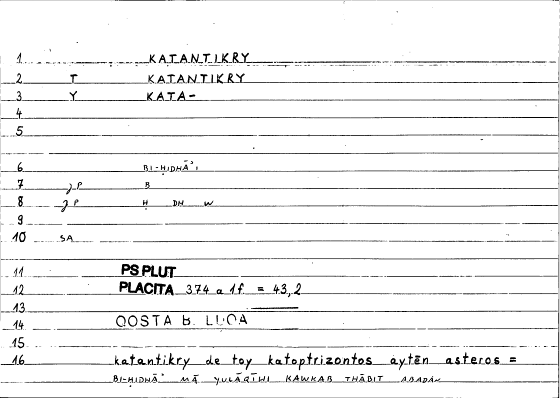 1 KATANTIKRY
2 T KATANTIKRY
3 Y KATA-
4
5
6 BI-ḤIDHĀʾI
7 JP B
8 JP Ḥ DH W
9
10 SA
11 PS PLUT
12 PLACITA 374 a 1f. = 43,2
13
14 QOSTA B. LUQA
15
16 katantikry de toy katoptrizontos aytēn asteros =
BI-ḤIDHĀʾ MĀ YULĀQĪHI KAWKAB THĀBIT ABADAN